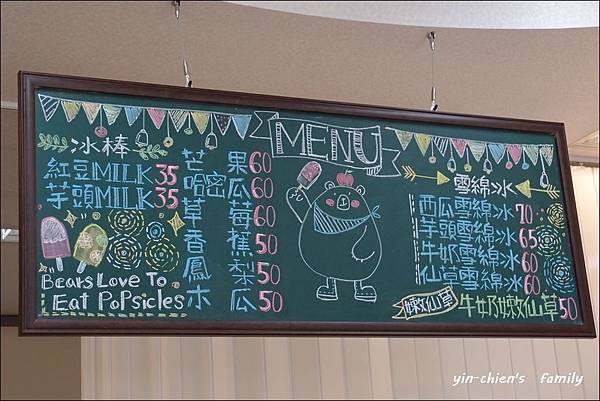 MENU
冰棒
紅豆MILK 35
芋頭MILK 35
芒果 60
哈密瓜 60
草莓 60
香蕉 50
鳳梨 50
木瓜 50
Bears Love To
Eat PoPsicles
雪綿冰
西瓜雪綿冰 70
芋頭雪綿冰 65
牛奶雪綿冰 60
仙草雪綿冰 60
嫩仙草
牛奶嫩仙草 50
yin-chien's family